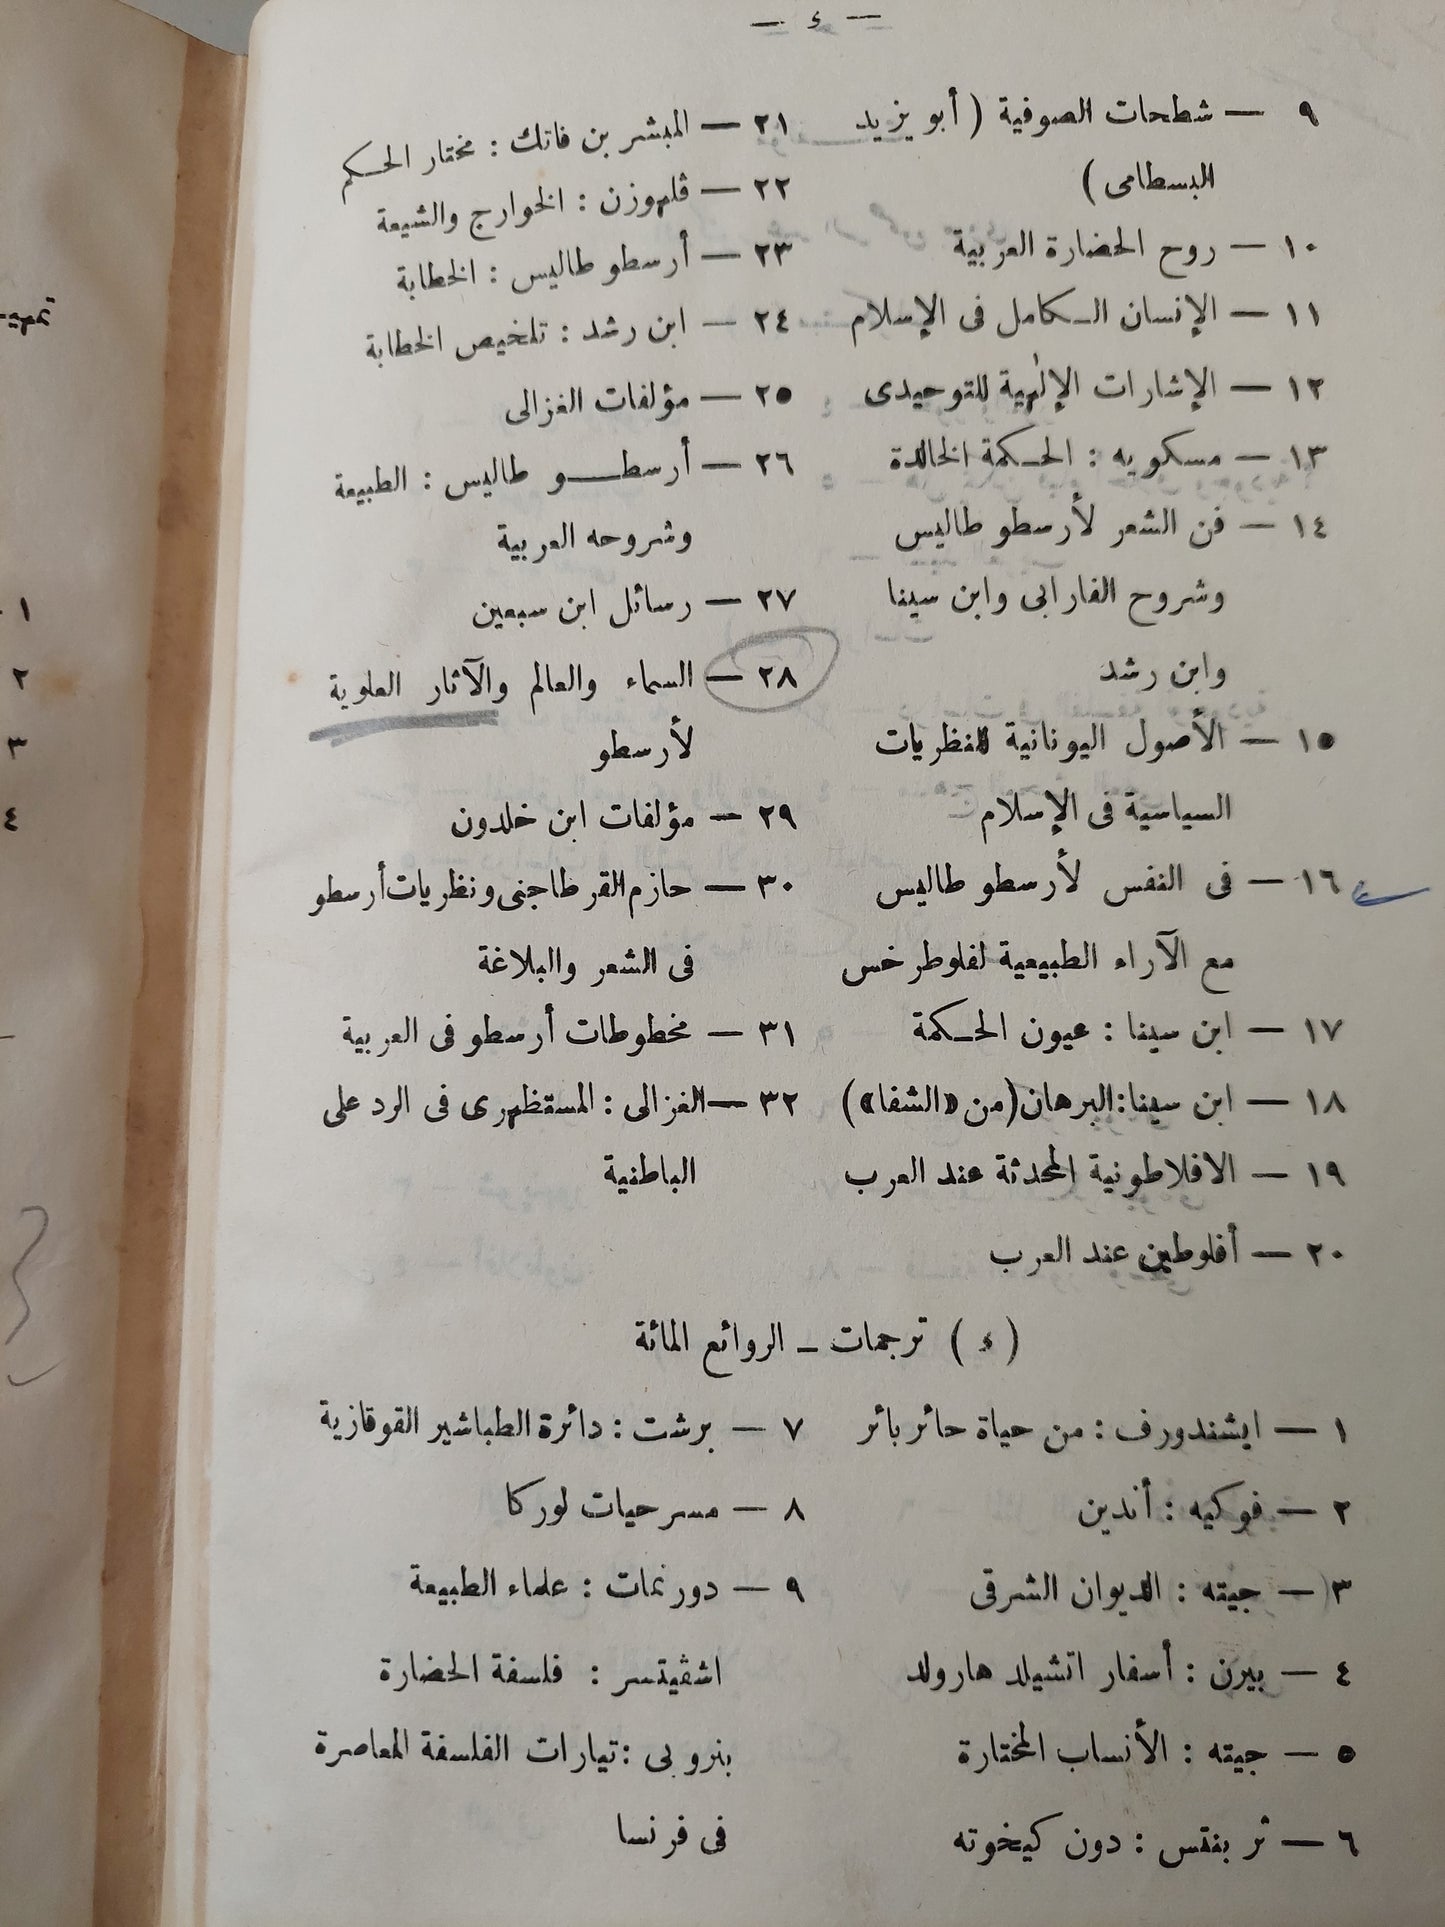 — ٤ —
٩ — شطحات الصوفية ( أبو يزيد
البسطامى )
١٠ — روح الحضارة العربية
١١ — الإنسان الكامل فى الإسلام
١٢ — الإشارات الإلٰهية للتوحيدى
١٣ — مسكويه : الحكمة الخالدة
١٤ — فن الشعر لأرسطو طاليس
وشروح الفارابى وابن سينا
وابن رشد
١٥ — الأصول اليونانية للنظريات
السياسية فى الإسلام
١٦ — فى النفس لأرسطو طاليس
مع الآراء الطبيعية لفلوطرخس
١٧ — ابن سينا : عيون الحكمة
١٨ — ابن سينا : البرهان (من «الشفا»)
١٩ — الافلاطونية المحدثة عند العرب
٢٠ — أفلوطين عند العرب
٢١ — المبشر بن فاتك : مختار الحكم
٢٢ — ڤلهوزن : الخوارج والشيعة
٢٣ — أرسطو طاليس : الخطابة
٢٤ — ابن رشد : تلخيص الخطابة
٢٥ — مؤلفات الغزالى
٢٦ — أرسطو طاليس : الطبيعة
وشروحه العربية
٢٧ — رسائل ابن سبعين
٢٨ — السماء والعالم والآثار العلوية
لأرسطو
٢٩ — مؤلفات ابن خلدون
٣٠ — حازم القرطاجنى ونظريات أرسطو
فى الشعر والبلاغة
٣١ — مخطوطات أرسطو فى العربية
٣٢ — الغزالى : المستظهرى فى الرد على
الباطنية
( ٤ ) ترجمات – الروائع المائة
١ — ايشندورف : من حياة حائر بائر
٢ — فوكيه : أندين
٣ — جيته : الديوان الشرقى
٤ — بيرن : أسفار اتشيلد هارولد
٥ — جيته : الأنساب المختارة
٦ — ثربنتس : دون كيخوته
٧ — برشت : دائرة الطباشير القوقازية
٨ — مسرحيات لوركا
٩ — دورنمات : علماء الطبيعة
اشڤيتسر : فلسفة الحضارة
بنروبى : تيارات الفلسفة المعاصرة
فى فرنسا
١
٢
٣
٤